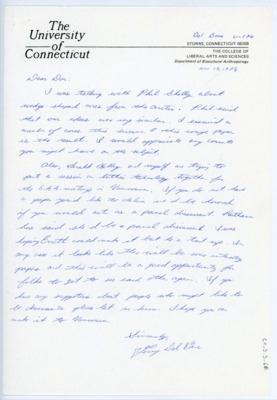 The
University
of
Connecticut
STORRS, CONNECTICUT 06268
THE COLLEGE OF
LIBERAL ARTS AND SCIENCES
Department of Biocultural Anthropology
Dear Don:
I was talking with Phil Shelley about
wedge shaped cores from the Arctic. Phil said
that our ideas were very similar. I examined a
number of cores this summer & this rough paper
is the result. I would appreciate any comments
you might have on the subject.
Also, Shelley and myself are trying to
put a session on lithic technology together for
the S.A.A. meetings in Vancouver. If you do not have
a paper you'd like to deliver we'd be honored
if you would act as a panel discussant
has said she'd be a panel discussant. I was
hoping could make it but he is tied up. In
any case it looks like there will be some interesting
papers and this will be a good opportunity for
folks to get to see each other again. If you
have any suggestions about people who might like to
be discussants please let us know. I hope you can
make it to Vancouver.
Sincerely,